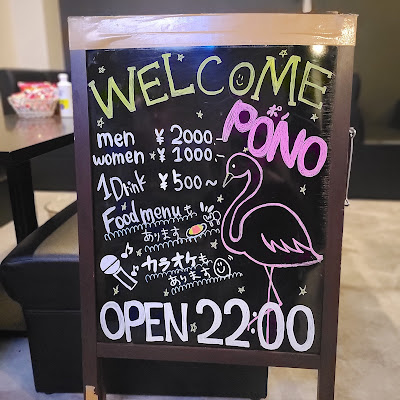 WELCOME
PONO
men ¥2000.-
women ¥1000.-
1Drink ¥500~
Food menuも
あります
カラオケも
あります
OPEN 22:00